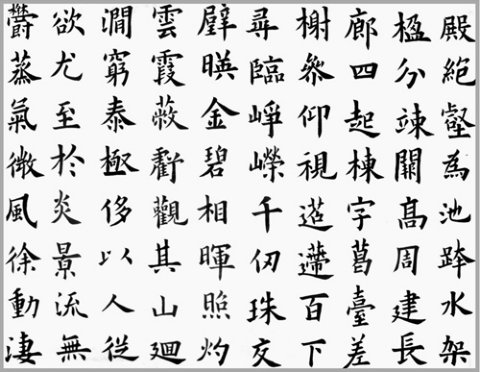 殿絶壑為池跨水架
楹分竦闕高周建長
廊四起棟宇葛臺差
榭参仰視迢遰百下
尋臨崢嶸千仞珠交
璧暎金碧相暉照灼
雲霞蔽虧觀其山廻
澗窮泰極侈以人從
欲尤至於炎景流無
欝蒸氣微風徐動淒